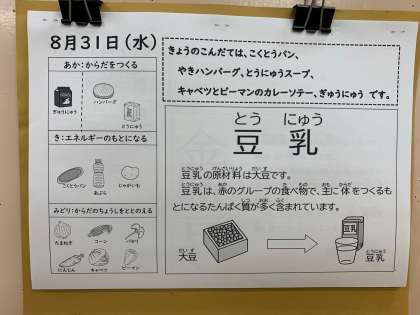 8月31日(水)
きょうのこんだては、こくとうパン、
やきハンバーグ、とうにゅうスープ、
キャベツとピーマンのカレーソテー、ぎゅうにゅう です。
あか:からだをつくる
ぎゅうにゅう
ハンバーグ
とうにゅう
き:エネルギーのもとになる
こくとうパン
あぶら
じゃがいも
みどり:からだのちょうしをととのえる
たまねぎ
コーン
パセリ
にんじん
キャベツ
ピーマン
とう にゅう
豆 乳
とうにゅう げんざいりょう だいず
豆乳の原材料は大豆です。
とうにゅう あか た もの おも からだ
豆乳は、赤のグループの食べ物で、主に体をつくるも
しつ おお ふく
とになるたんぱく質が多く含まれています。
だいず
大豆
とうにゅう
豆乳